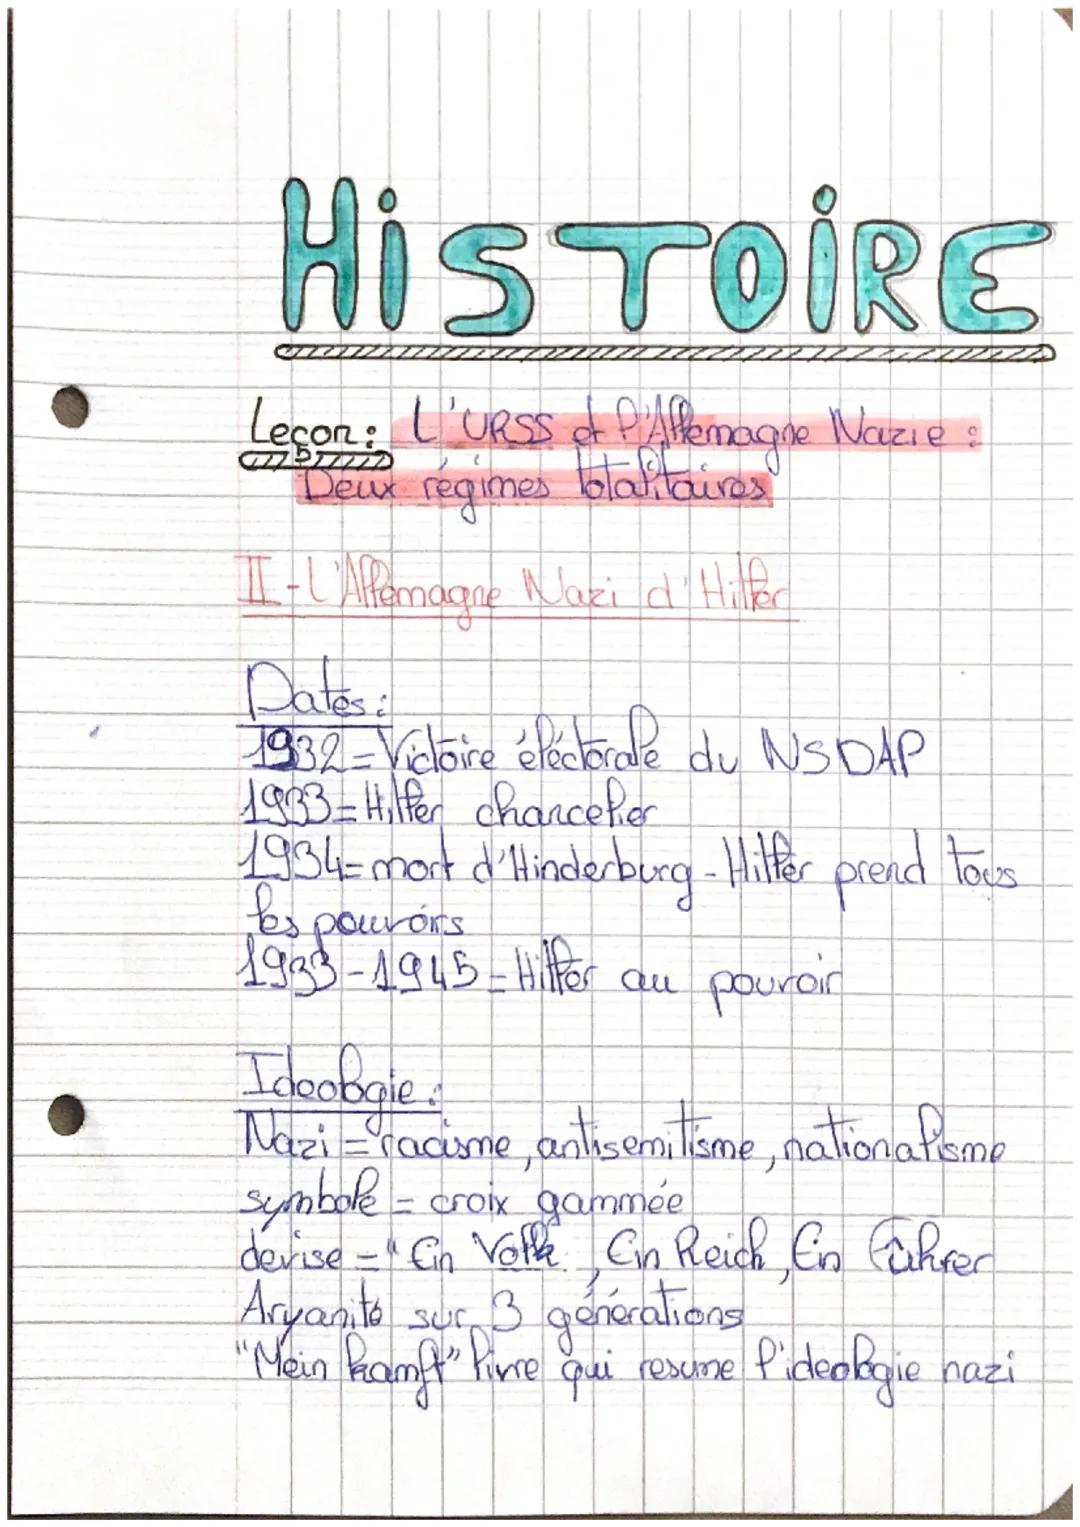 HiSTOiRE
Leçon: L'URSS et l'Allemagne Nazie :
5
Deux régimes totalitaires
II - L'Allemagne Nazi d'Hitler
Dates:
1932 = Victoire éléctorale du NSDAP
1933 = Hitler chancelier
1934 = mort d'Hinderburg - Hitler prend tous
les pouvoirs
1933 - 1945 = Hitler au pouvoir
Ideologie :
Nazi = racisme, antisemitisme, nationalisme
symbole = croix gammée
devise = "Ein Volk, Ein Reich, Ein Führer
Aryanité sur 3 générations
"Mein kamft" livre qui resume l'ideologie nazi